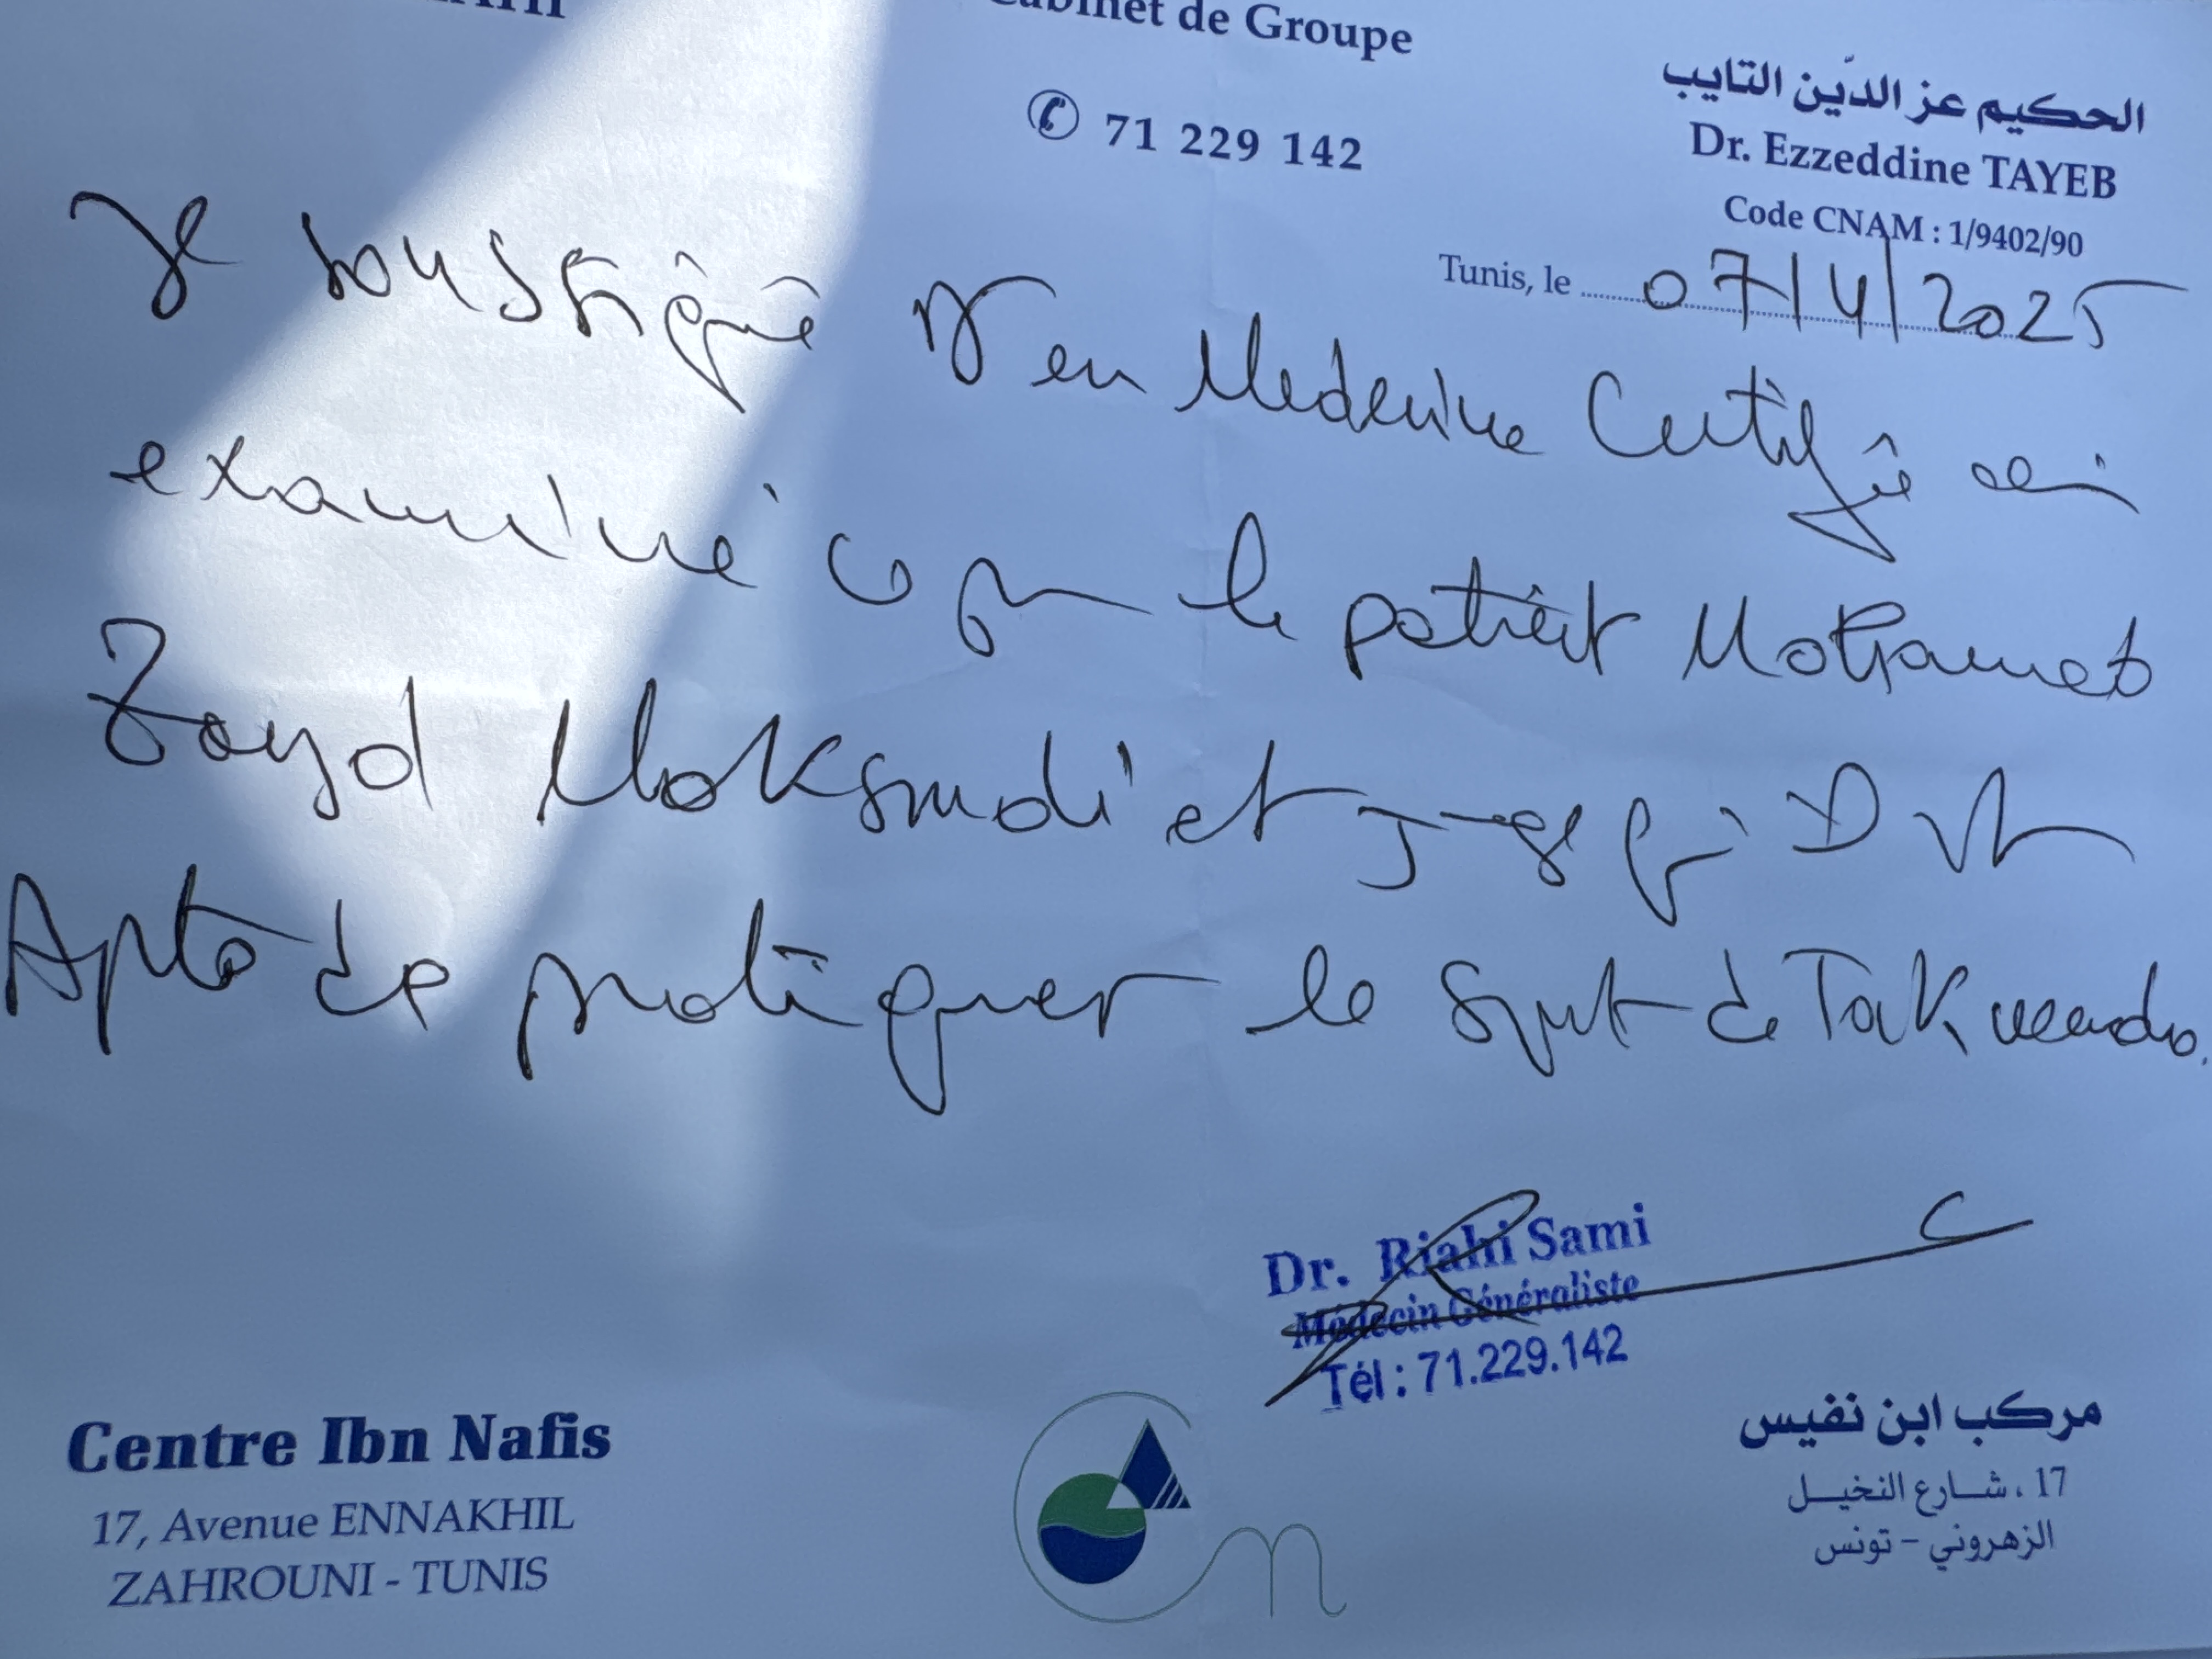 Cabinet de Groupe
71 229 142
الحكيم عز الدّين التايب
Dr. Ezzeddine TAYEB
Code CNAM : 1/9402/90
Tunis, le 07/4/2025
Je soussigné Dr en Medecine Certifie avoir
examiné ce jour le patient Mohamed
Zayd Moksmdi et juge qu'il Est
Apte de pratiquer le Sport de Takwendo.
Dr. Riahi Sami
Médecin Généraliste
Tél : 71.229.142
Centre Ibn Nafis
17, Avenue ENNAKHIL
ZAHROUNI - TUNIS
مركب ابن نفيس
17 ، شارع النخيل
الزهروني - تونس